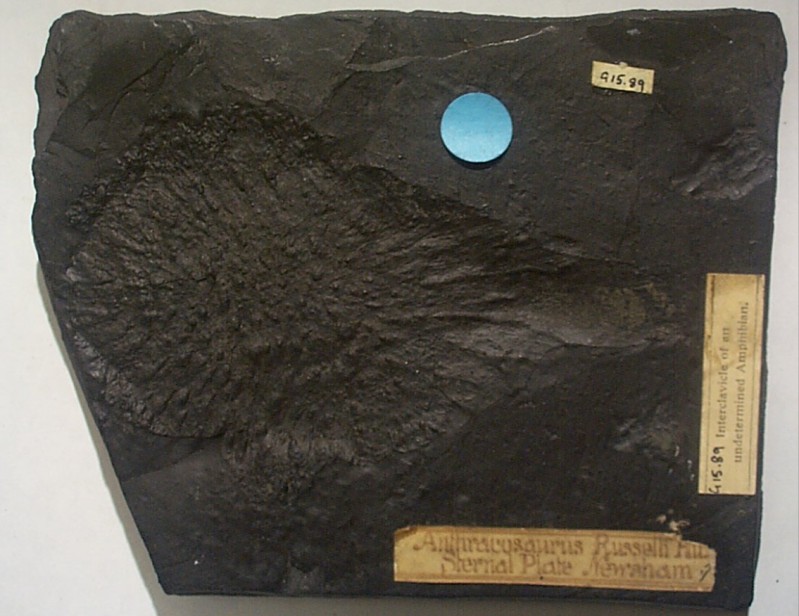 G15.89
G15.89 Interclavicle of an
undetermined Amphibian.
Anthracosaurus Russelli Hu
Sternal Plate Newsham